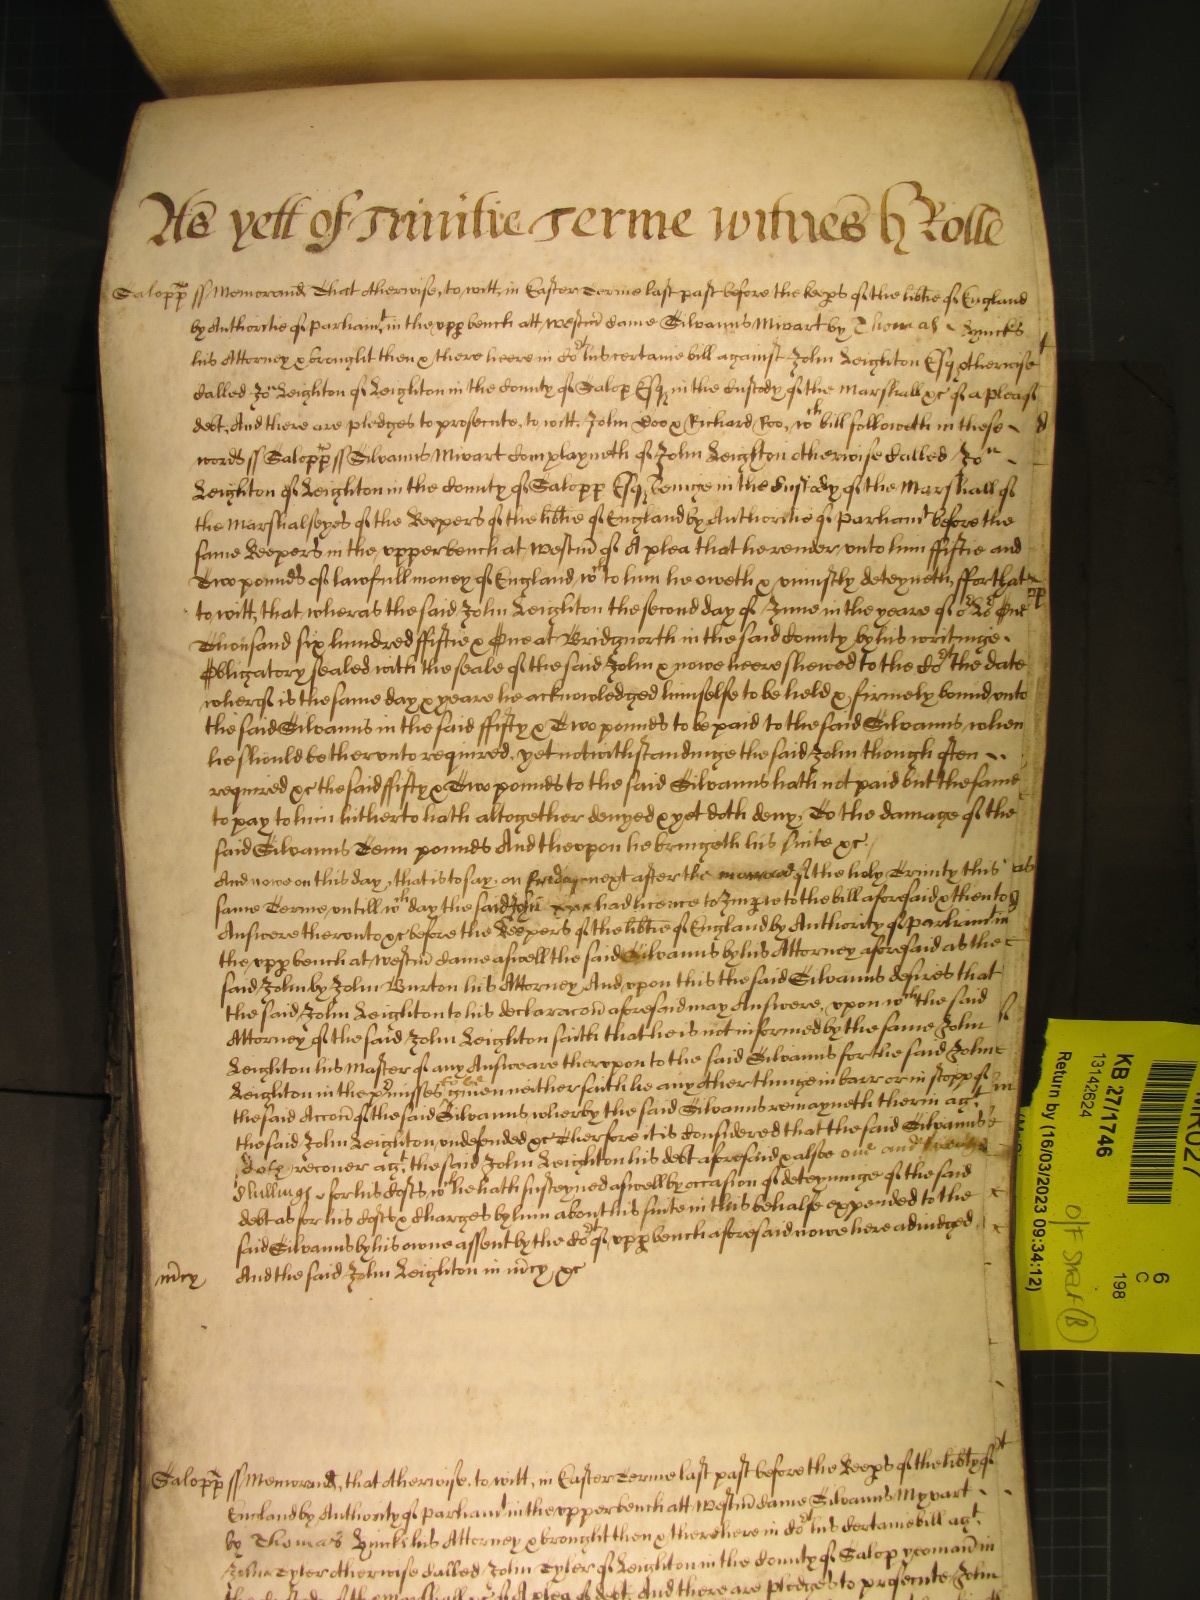 As yett of Trinitie Terme witnes h Rolle
Salopp ss Memorand That otherwise, to witt, in Easter Terme last past before the keeps of the lib̄tie of England
by Authoritie of Parliamt in the upp bench att Westm̄ Came Silvanus Mivart by Thomas Kynicks
his Attorney & brought then & there heere in Cort his certaine bill against John Leighton Esq otherwise
Called Jon Leighton of Leighton in the County of Salop Esq in the Custody of the Marshall &c of a plea of
debt, And there are pledges to prosecute, to witt John Doo & Richard Roo, wch bill followeth in these
words ss Salopp ss Silvanus Mivart Complayneth of John Leighton otherwise Called Jon
Leighton of Leighton in the County of Salopp Esq beinge in the Custody of the Marshall of
the Marshalseyes of the Keepers of the lib̄tie of England by Authoritie of Parliamt before the
same Keepers in the upper bench at Westm̄ of A plea that he render unto him ffiftie and
Two pounds of lawfull money of England wch to him he oweth & uniustly deteyneth, ffor that
to witt, that wheras the said John Leighton the second day of June in the yeare of or Lo: One
Thousand six hundred ffiftie & One at Bridgnorth in the said County by his writinge
Obligatory sealed with the seale of the said John & nowe heere shewed to the Cort the date
wherof is the same day & yeare he acknowledged himselfe to be held & firmely bound unto
the said Silvanus in the said ffifty & Two pounds to be paid to the said Silvanus, when
he should be therunto required, yet notwithstandinge the said John though often
required &c the said ffifty & Two pounds to the said Silvanus hath not paid but the same
to pay to him hitherto hath altogether denyed & yet doth deny, To the damage of the
said Silvanus Tenn pounds And therupon he bringeth his suite &c.
And nowe on this day, that is to say, on Friday next after the morrow of the holy Trinity this
same Terme, untill wch day the said John had licence to Imple to the bill aforesaid & then to
Answere therunto &c before the Keepers of the lib̄tie of England by Authority of Parliamt in
the upp bench at Westm̄ Came aswell the said Silvanus by his Attorney aforesaid as the
said John by John Burton his Attorney And upon this the said Silvanus desires that
the said John Leighton to his declaracon̄ aforesaid may Answere, upon wch the said
Attorney of the said John Leighton saith that he is not informed by the same John
Leighton his Master of any Answeare therupon to the said Silvanus for the said John
Leighton in the p̄misses to be given neither saith he any other thinge in barr or in stopp of
the said Accon̄ of the said Silvanus wherby the said Silvanus remayneth therin agt
the said John Leighton undefended &c Therfore it is Considered that the said Silvanus
doe recover agt the said John Leighton his debt aforesaid & alsoe one and twenty
shillings for his Costs wch he hath susteyned aswell by occasion of deteyninge of the said
debt as for his Costs & Charges by him about his suite in this behalfe expended to the
said Silvanus by his owne assent by the Cort of upp bench aforesaid nowe here adiudged
m̄cy And the said John Leighton in m̄cy, &c
Salopp ss Memorand, that otherwise, to witt, in Easter Terme last past before the Keeps of the libty of
England by Authority of Parliamt in the upper bench att Westm̄ Came Silvanus Myvart
by Thomas Kynicks his Attorney & brought then & there here in Cort his Certaine bill agt
John Tyler otherwise Called John Tyler of Leighton in the County of Salop yeoman in
the Custody of the Marshall &c of A plea of debt, And there are pledges to prosecute, John
KB 27/1746
13142624
Return by (16/03/2023 09:34:12)
6
C
198